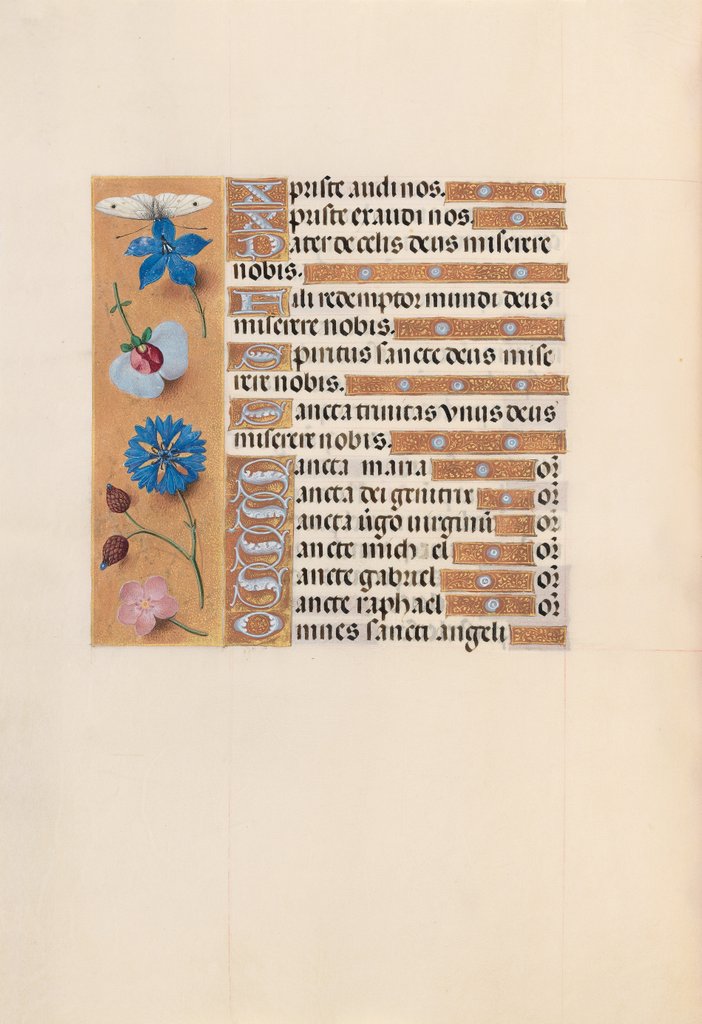 Xpriste audi nos.
Xpriste exaudi nos.
Pater de celis deus miserere
nobis.
Fili redemptor mundi deus
miserere nobis.
Spiritus sancte deus mise
rere nobis.
Sancta trinitas vnus deus
miserere nobis.
Sancta maria or
Sancta dei genitrix or
Sancta v̄go virginū or
Sancte michael or
Sancte gabriel or
Sancte raphael or
Omnes sancti angeli